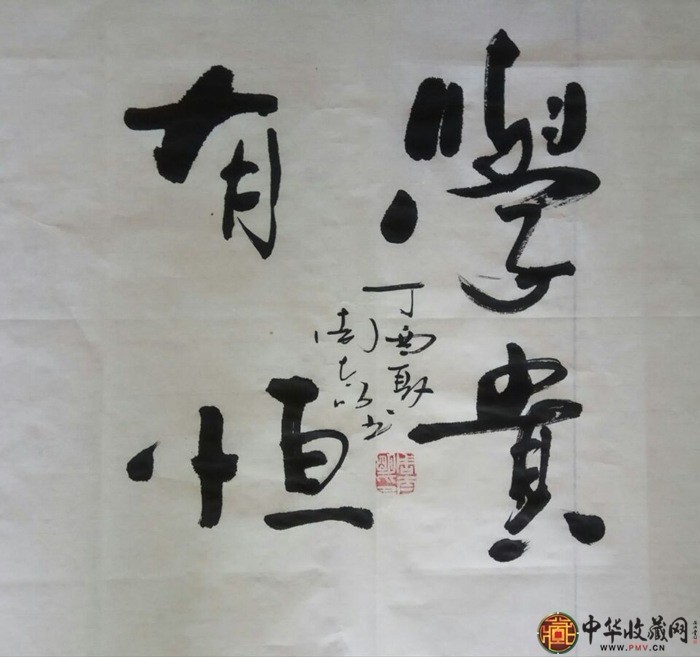 學貴
有恒
丁酉
中华收藏网
WWW.PMV.CN